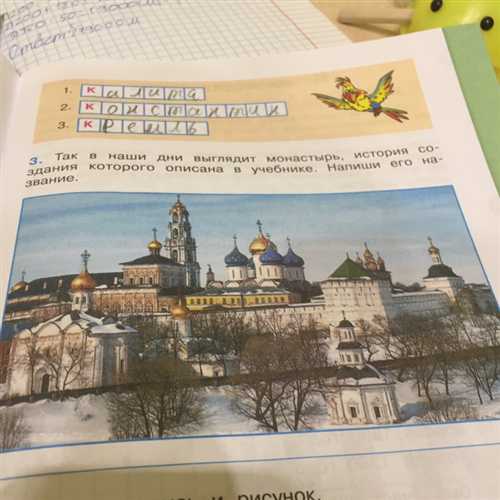 Ответ: 273000 м
1. Калита
2. Константин
3. Кремль
3. Так в наши дни выглядит монастырь, история со-
здания которого описана в учебнике. Напиши его на-
звание.
и рисунок.